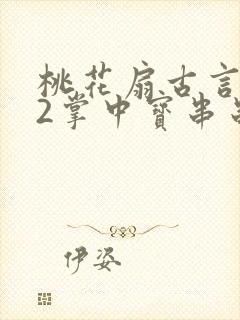 桃花扇古言
2掌中寳串
伊姿